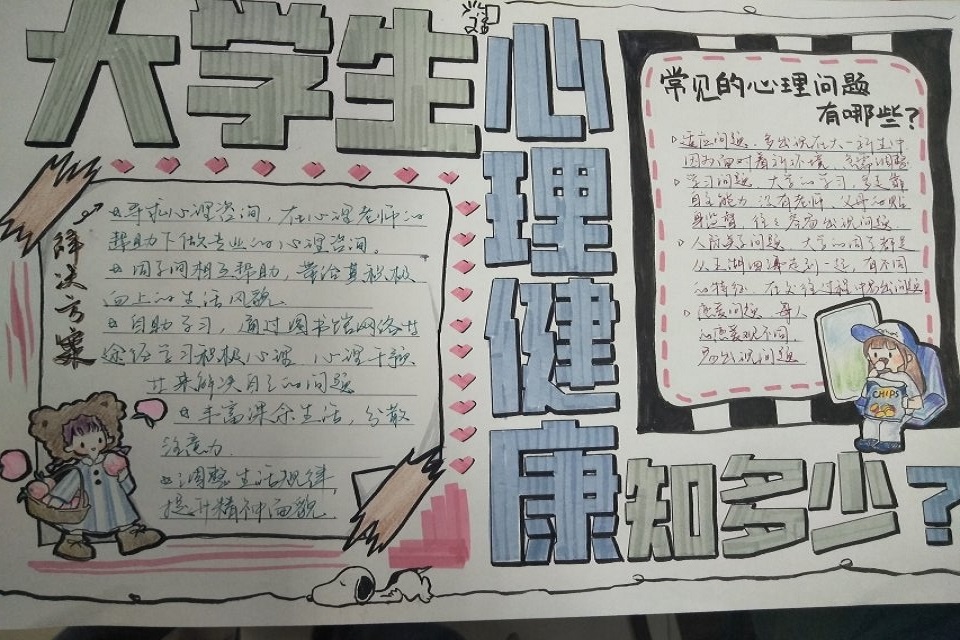 大学生
心理健康
知多少?
解决方案
寻求心理咨询,在心理老师的
帮助下做专业的心理咨询。
同学间相互帮助,带给其积极
向上的生活风貌
自助学习,通过图书馆网络等
途径学习积极心理、心理干预
等来解决自己的问题
丰富课余生活,分散
注意力
调整生活规律
提升精神面貌
常见的心理问题
有哪些?
适应问题 多出现在大一新生中
因为面对着新环境
学习问题 大学的学习,
自主能力 没有老师、父母的贴
身监督,往往容易出现问题
人际关系问题 大学的同学都是
从五湖四海走到一起,有不同
的特征,在交往过程中易出问题
恋爱问题 每人
的恋爱观不同,
易出现问题
CHIPS